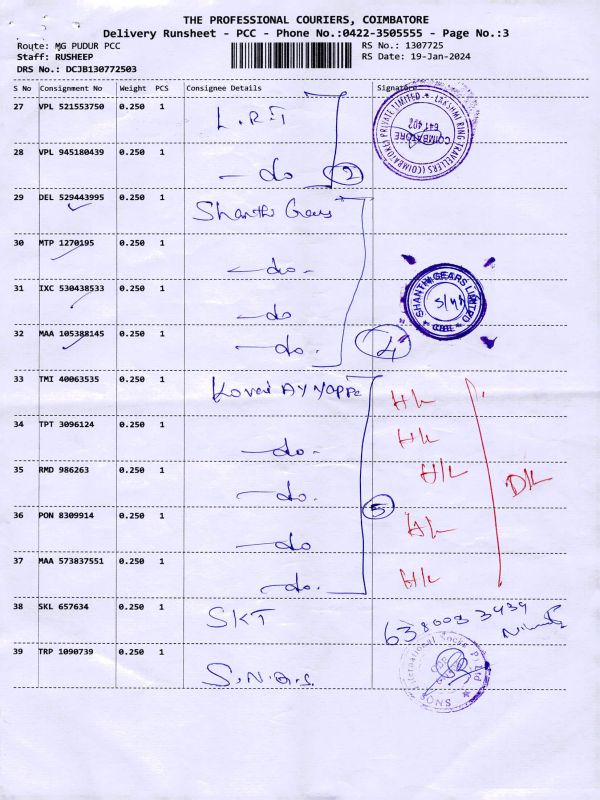 THE PROFESSIONAL COURIERS, COIMBATORE
Delivery Runsheet - PCC - Phone No.:0422-3505555 - Page No.:3
Route: MG PUDUR PCC
RS No.: 1307725
Staff: RUSHEEP
RS Date: 19-Jan-2024
DRS No.: DCJB130772503
S No Consignment No Weight PCS Consignee Details Signature
27 VPL 521553750 0.250 1 L.R.T
LAKSHMI RING TRAVELLERS (COIMBATORE) PRIVATE LIMITED
COIMBATORE
641 402
28 VPL 945180439 0.250 1 do 2
29 DEL 529443995 0.250 1 Shanthi Gears
30 MTP 1270195 0.250 1 do
31 IXC 530438533 0.250 1 do
SHANTHI GEARS LIMITED
32 MAA 105388145 0.250 1 do. 4
33 TMI 40063535 0.250 1 Kovai Ayyappa H/L
34 TPT 3096124 0.250 1 do. H/L
35 RMD 986263 0.250 1 do. H/L D/L
36 PON 8309914 0.250 1 do H/L
5
37 MAA 573837551 0.250 1 do. H/L
38 SKL 657634 0.250 1 SKT 638003 3439
39 TRP 1090739 0.250 1 S.N.Q.S.
SNQS International Socks P Ltd